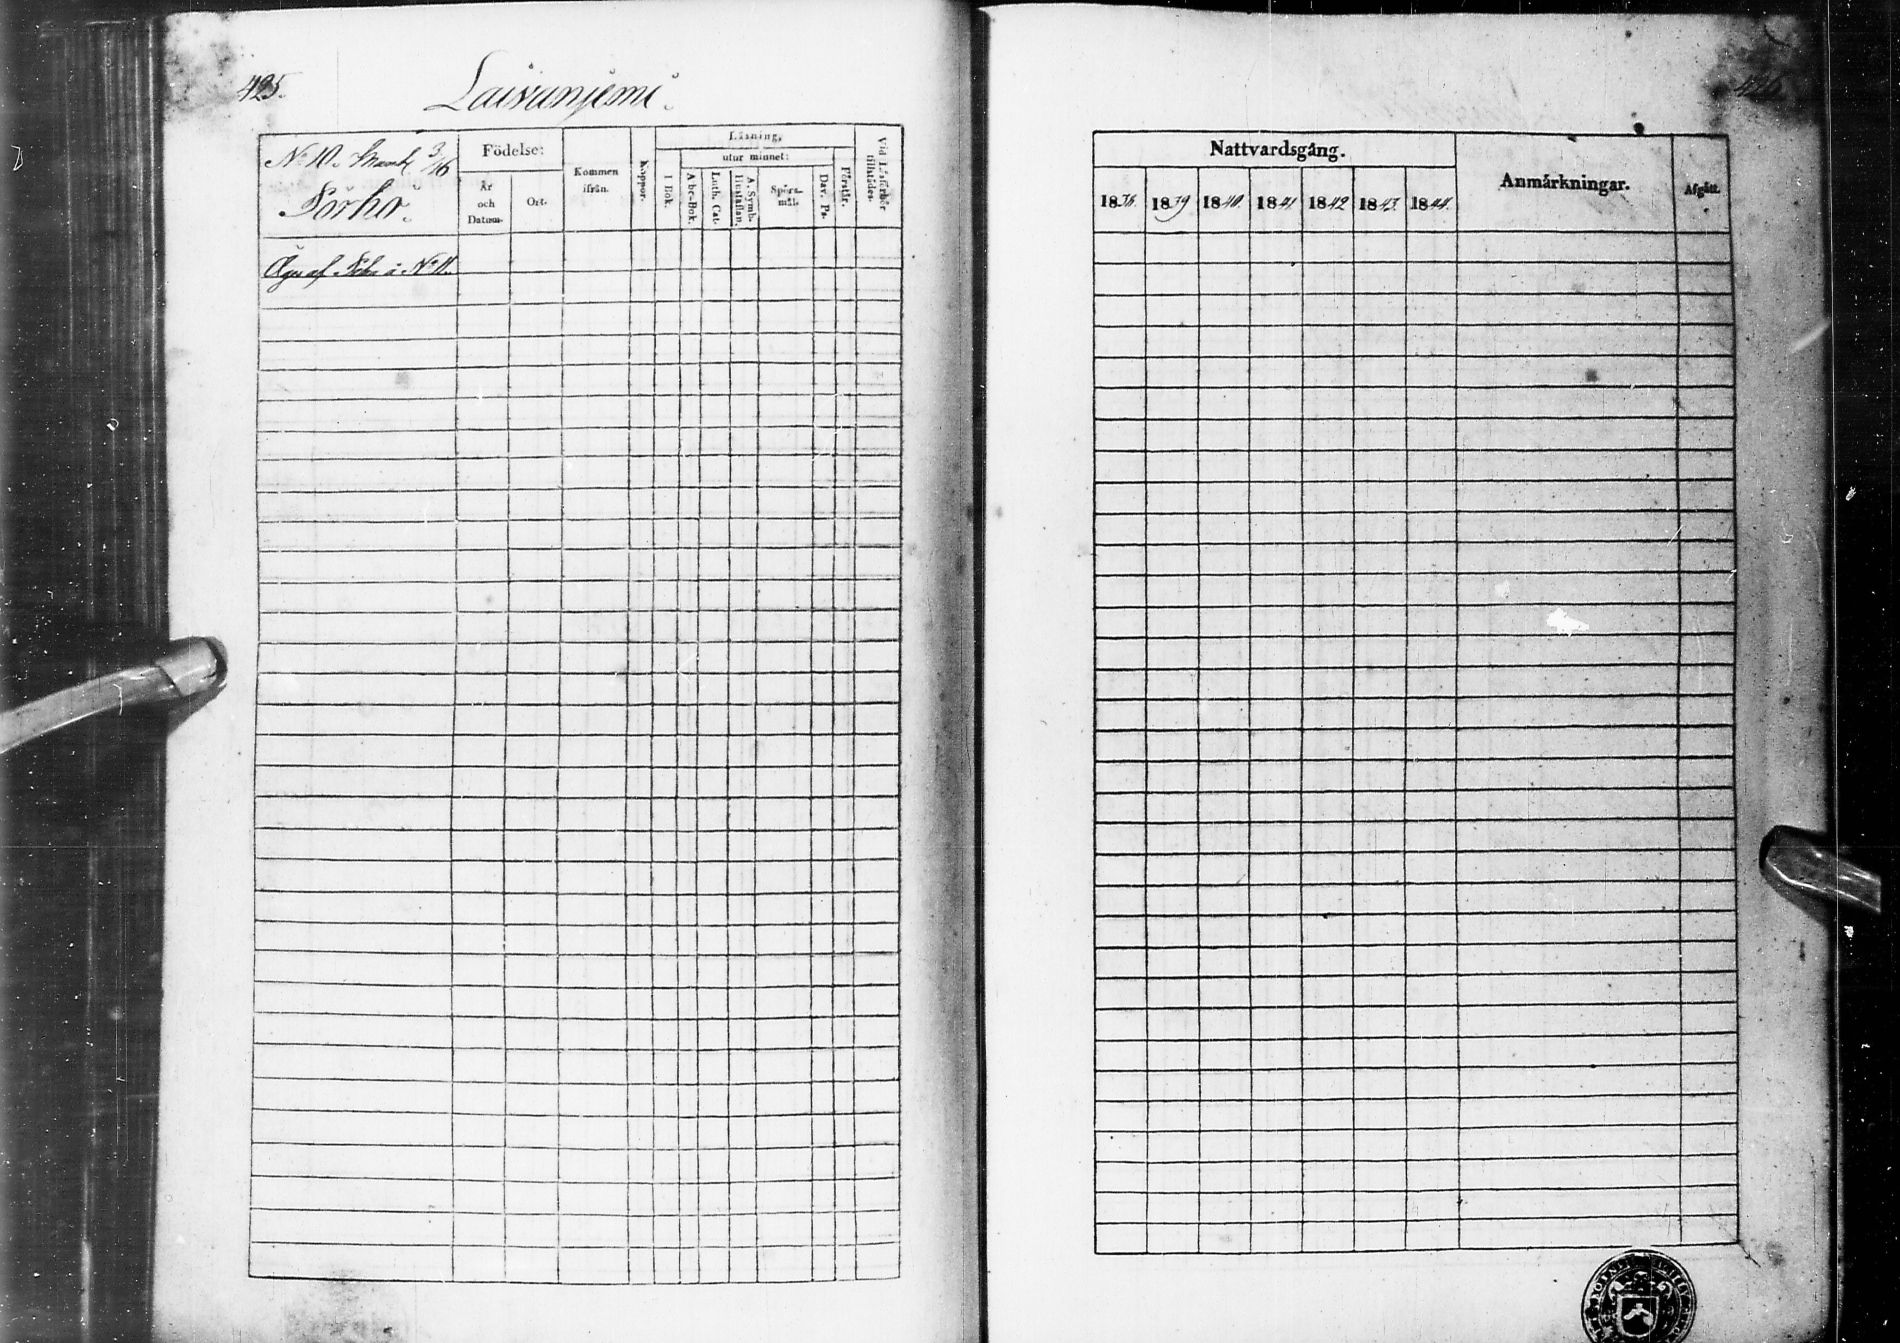 425.
Laivanjemi.
No 10. Mantl 3/16
Porho.
Födelse:
År och Datum.
Ort.
Kommen ifrån.
Koppor.
Läsning,
I Bok.
utur minnet:
Abc-Bok.
Luth. Cat.
A. Symb. Hustaflan.
Spörsmål.
Dav. Ps.
Förstår.
Vid Läsförhör tillstädes.
Äges af å No 11.
426.
Nattvardsgång.
1838. 1839 1840. 1841 1842 1843. 1844.
Anmärkningar.
Afgått.